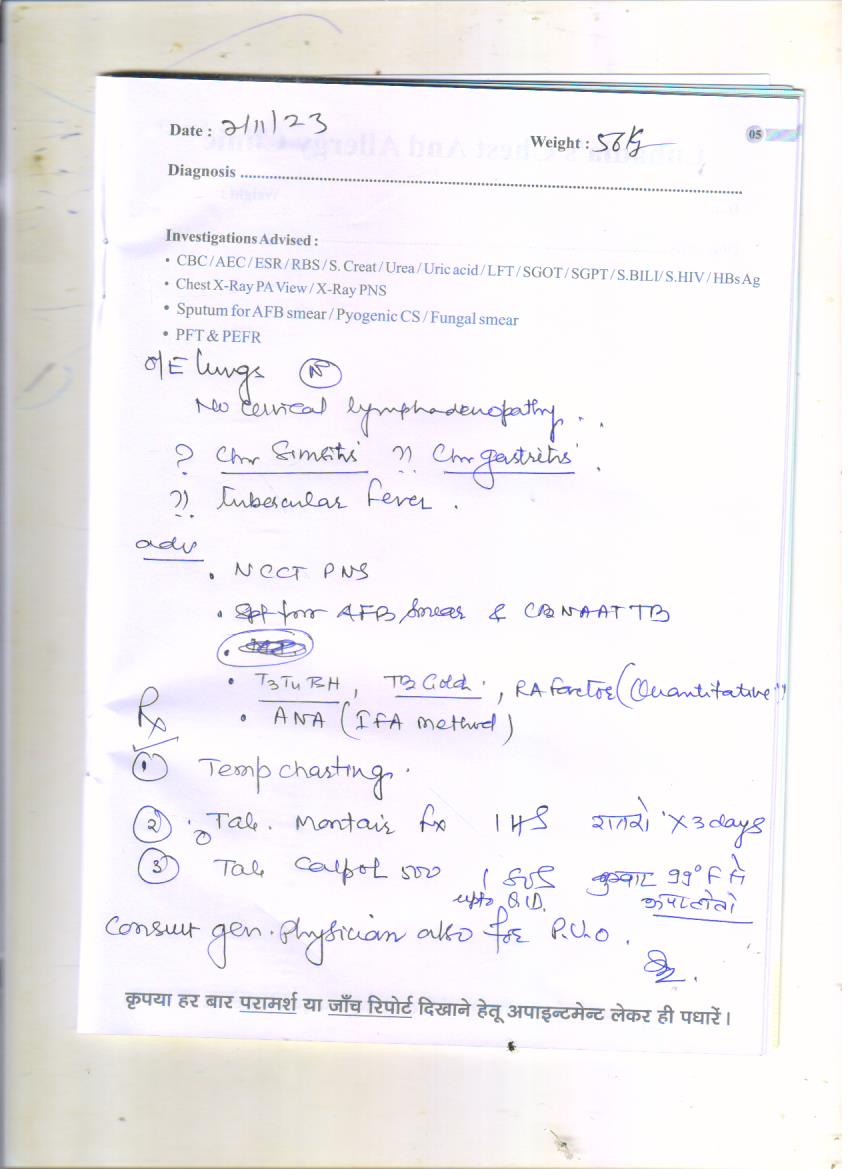 Date : 2/11/23
Weight : 56 Kg
05
Diagnosis
Investigations Advised :
• CBC / AEC / ESR / RBS / S. Creat / Urea / Uric acid / LFT / SGOT / SGPT / S.BILI / S.HIV / HBs Ag
• Chest X-Ray PA View / X-Ray PNS
• Sputum for AFB smear / Pyogenic CS / Fungal smear
• PFT & PEFR
O/E lungs N
No cervical lymphadenopathy
? Chr Sinsitis ?? Chr gastritis
?? tubercular fever.
adv
• NCCT PNS
• for AFB smear & CBNAAT TB
• T3T4TSH, TB Gold, RA factor (Quantitative)
• ANA (IFA method)
Rx
① Temp charting.
② Tab. Montair fx 1 HS रातको X 3 days
③ Tab Calpol 500 1 SOS बुखार 99°F से
upto QID. ऊपर होतो
Consult gen. Physician also for P.U.O.
कृपया हर बार परामर्श या जाँच रिपोर्ट दिखाने हेतू अपाइन्टमेन्ट लेकर ही पधारें।